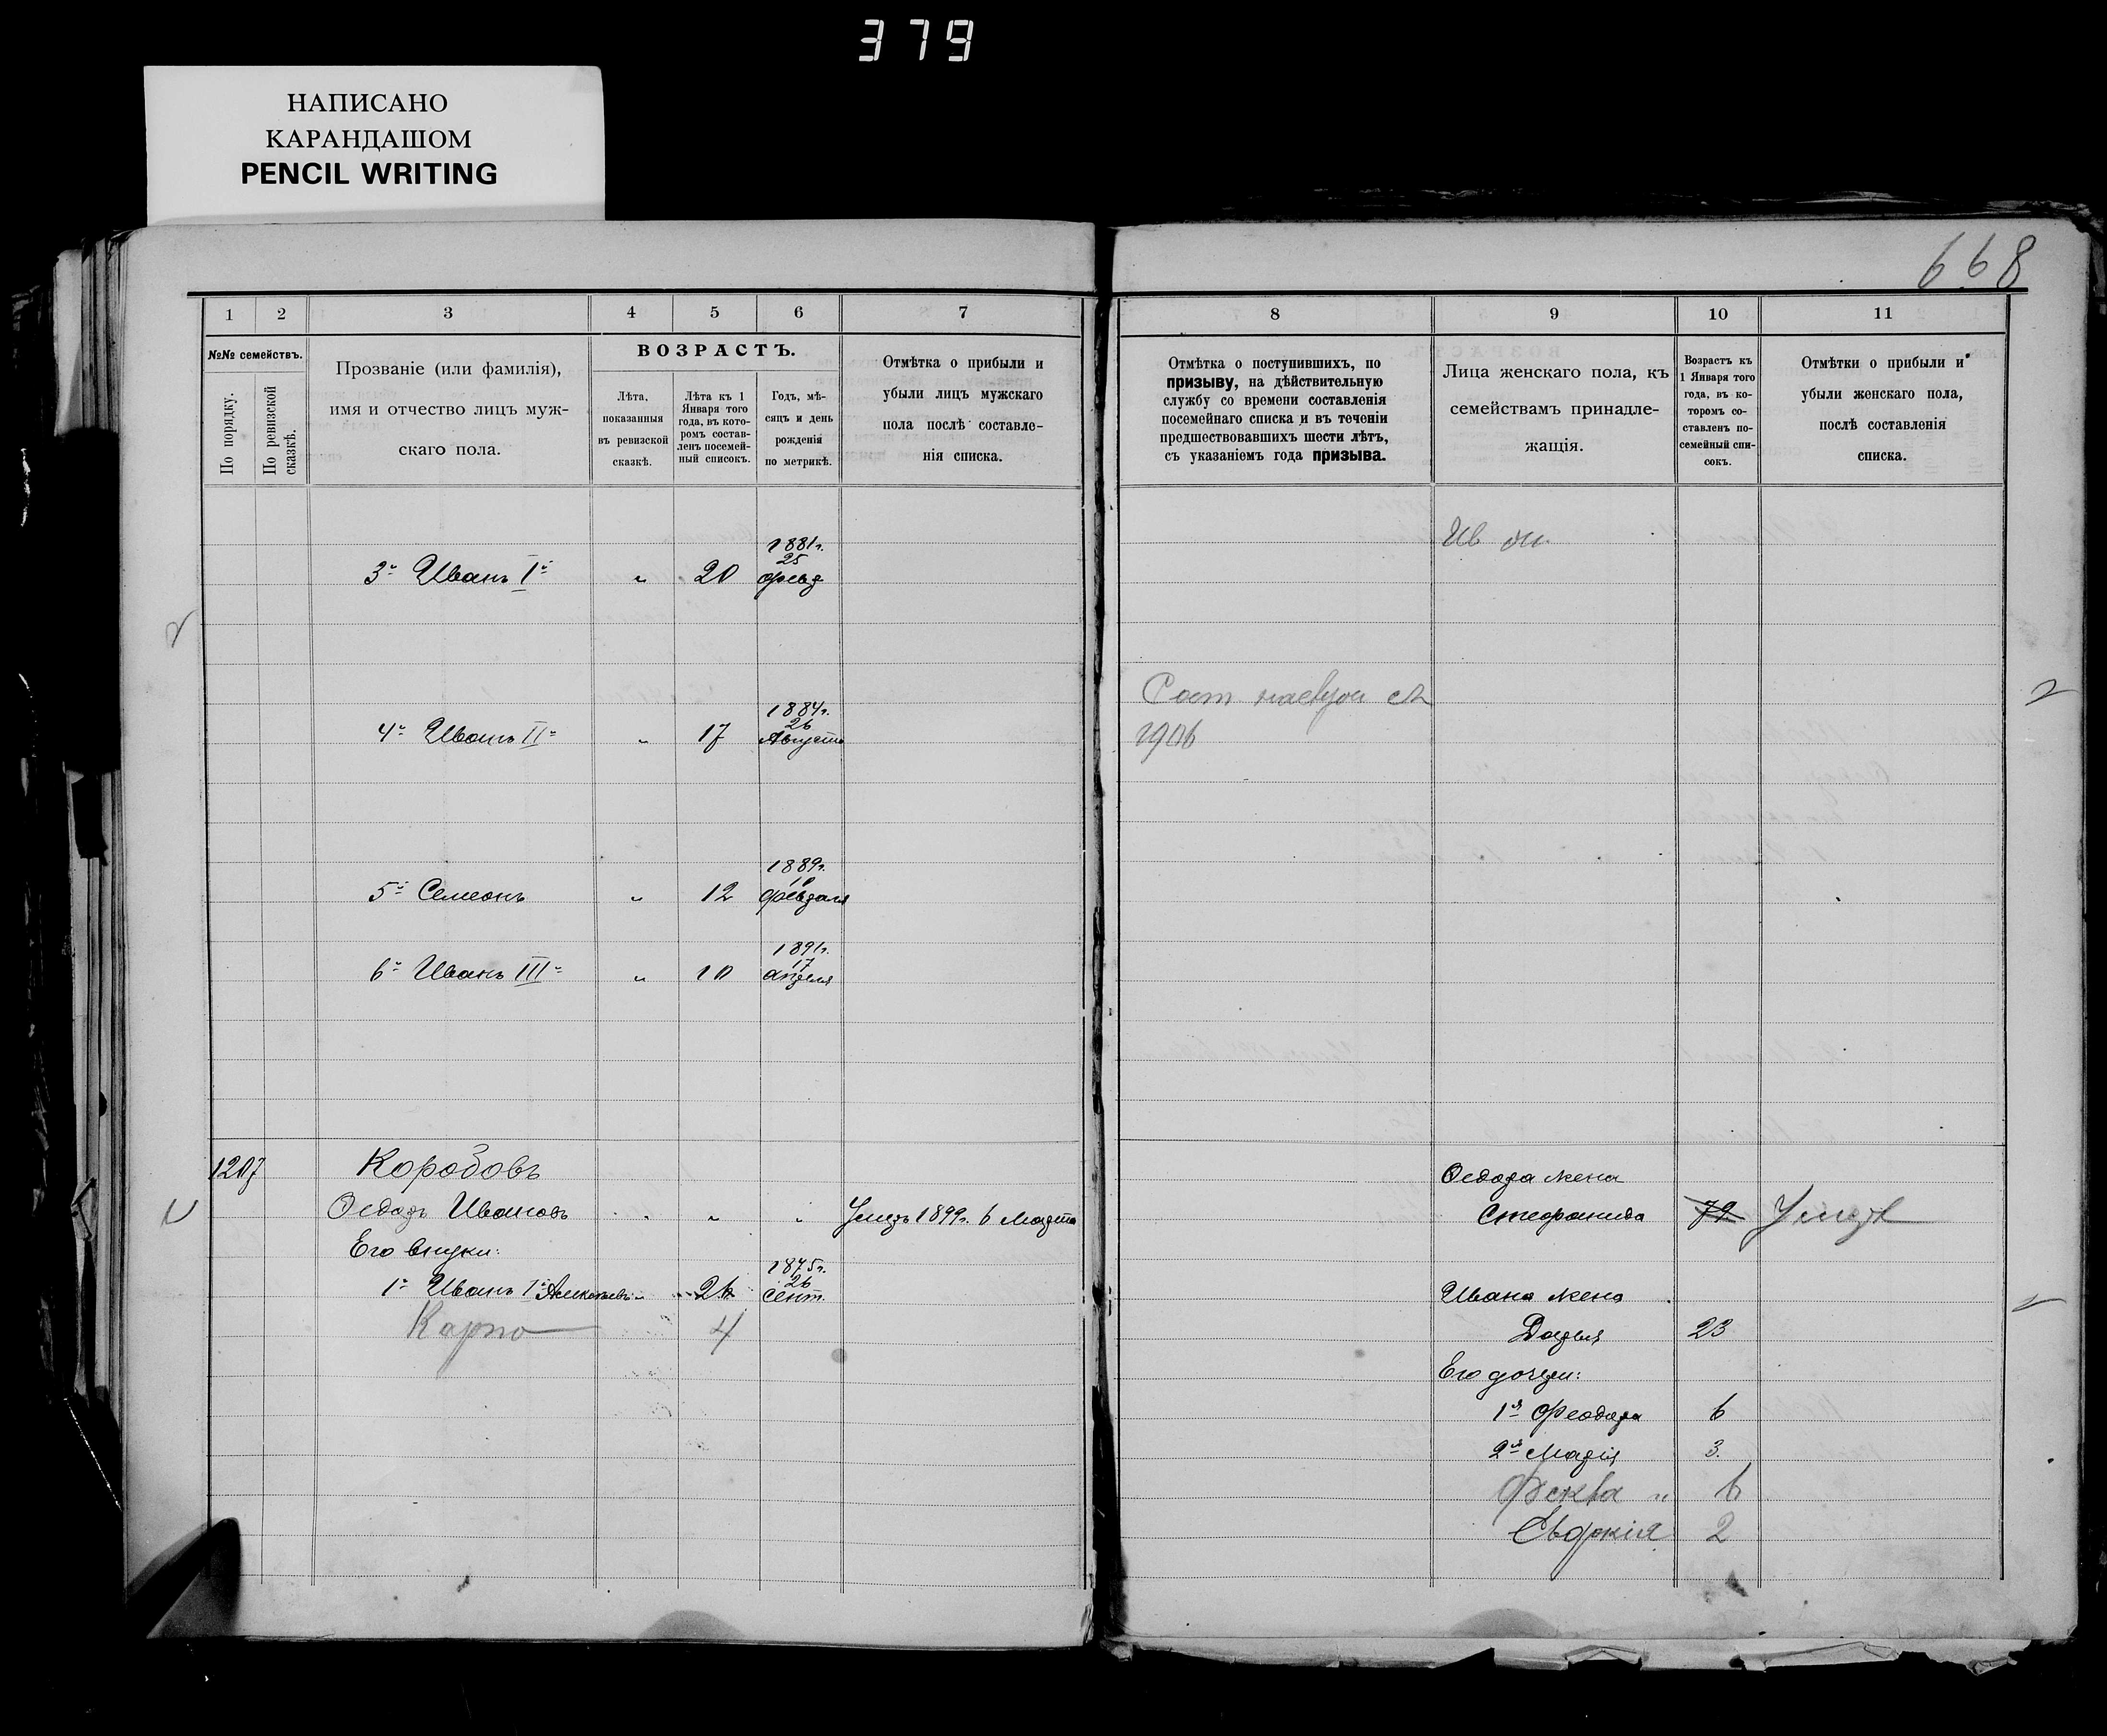 379
НАПИСАНО
КАРАНДАШОМ
PENCIL WRITING
668
1 2 3 4 5 6 7
№№ семействъ.
По порядку.
По ревизской сказкѣ.
Прозваніе (или фамилія),
имя и отчество лицъ муж-
скаго пола.
ВОЗРАСТЪ.
Лѣта,
показанныя
въ ревизской
сказкѣ.
Лѣта къ 1
Января того
года, въ кото-
ромъ состав-
ленъ посемей-
ный списокъ.
Годъ, мѣ-
сяцъ и день
рожденія
по метрикѣ.
Отмѣтка о прибыли и
убыли лицъ мужскаго
пола послѣ составле-
нія списка.
1881г.
25
3й Иванъ Iй " 20 февр
1884г.
26
4й Иванъ IIй " 17 Августа
1889г.
10
5й Семеонъ " 12 февраля
1891г.
17
6й Иванъ IIIй " 10 апреля
1207 Коробовъ
Ѳедоръ Ивановъ " " " Умеръ 1899г. 6 Марта
Его внуки:
1875г.
26
1й Иванъ 1й Алексеевъ " 26 сент.
Карпо 4
8 9 10 11
Отмѣтка о поступившихъ, по
призыву, на дѣйствительную
службу со времени составленія
посемейнаго списка и въ теченіи
предшествовавшихъ шести лѣтъ,
съ указаніемъ года призыва.
Лица женскаго пола, къ
семействамъ принадле-
жащія.
Возрастъ къ
1 Января того
года, въ ко-
торомъ со-
ставленъ по-
семейный спи-
сокъ.
Отмѣтки о прибыли и
убыли женскаго пола,
послѣ составленія
списка.
1906
Ѳедора жена
Стефанида 72 Умерл
Ивана жена
Дарья 23
Его дочери:
1я Феодора 6
2я Марія 3.
Фекла " 6
Евдокія 2